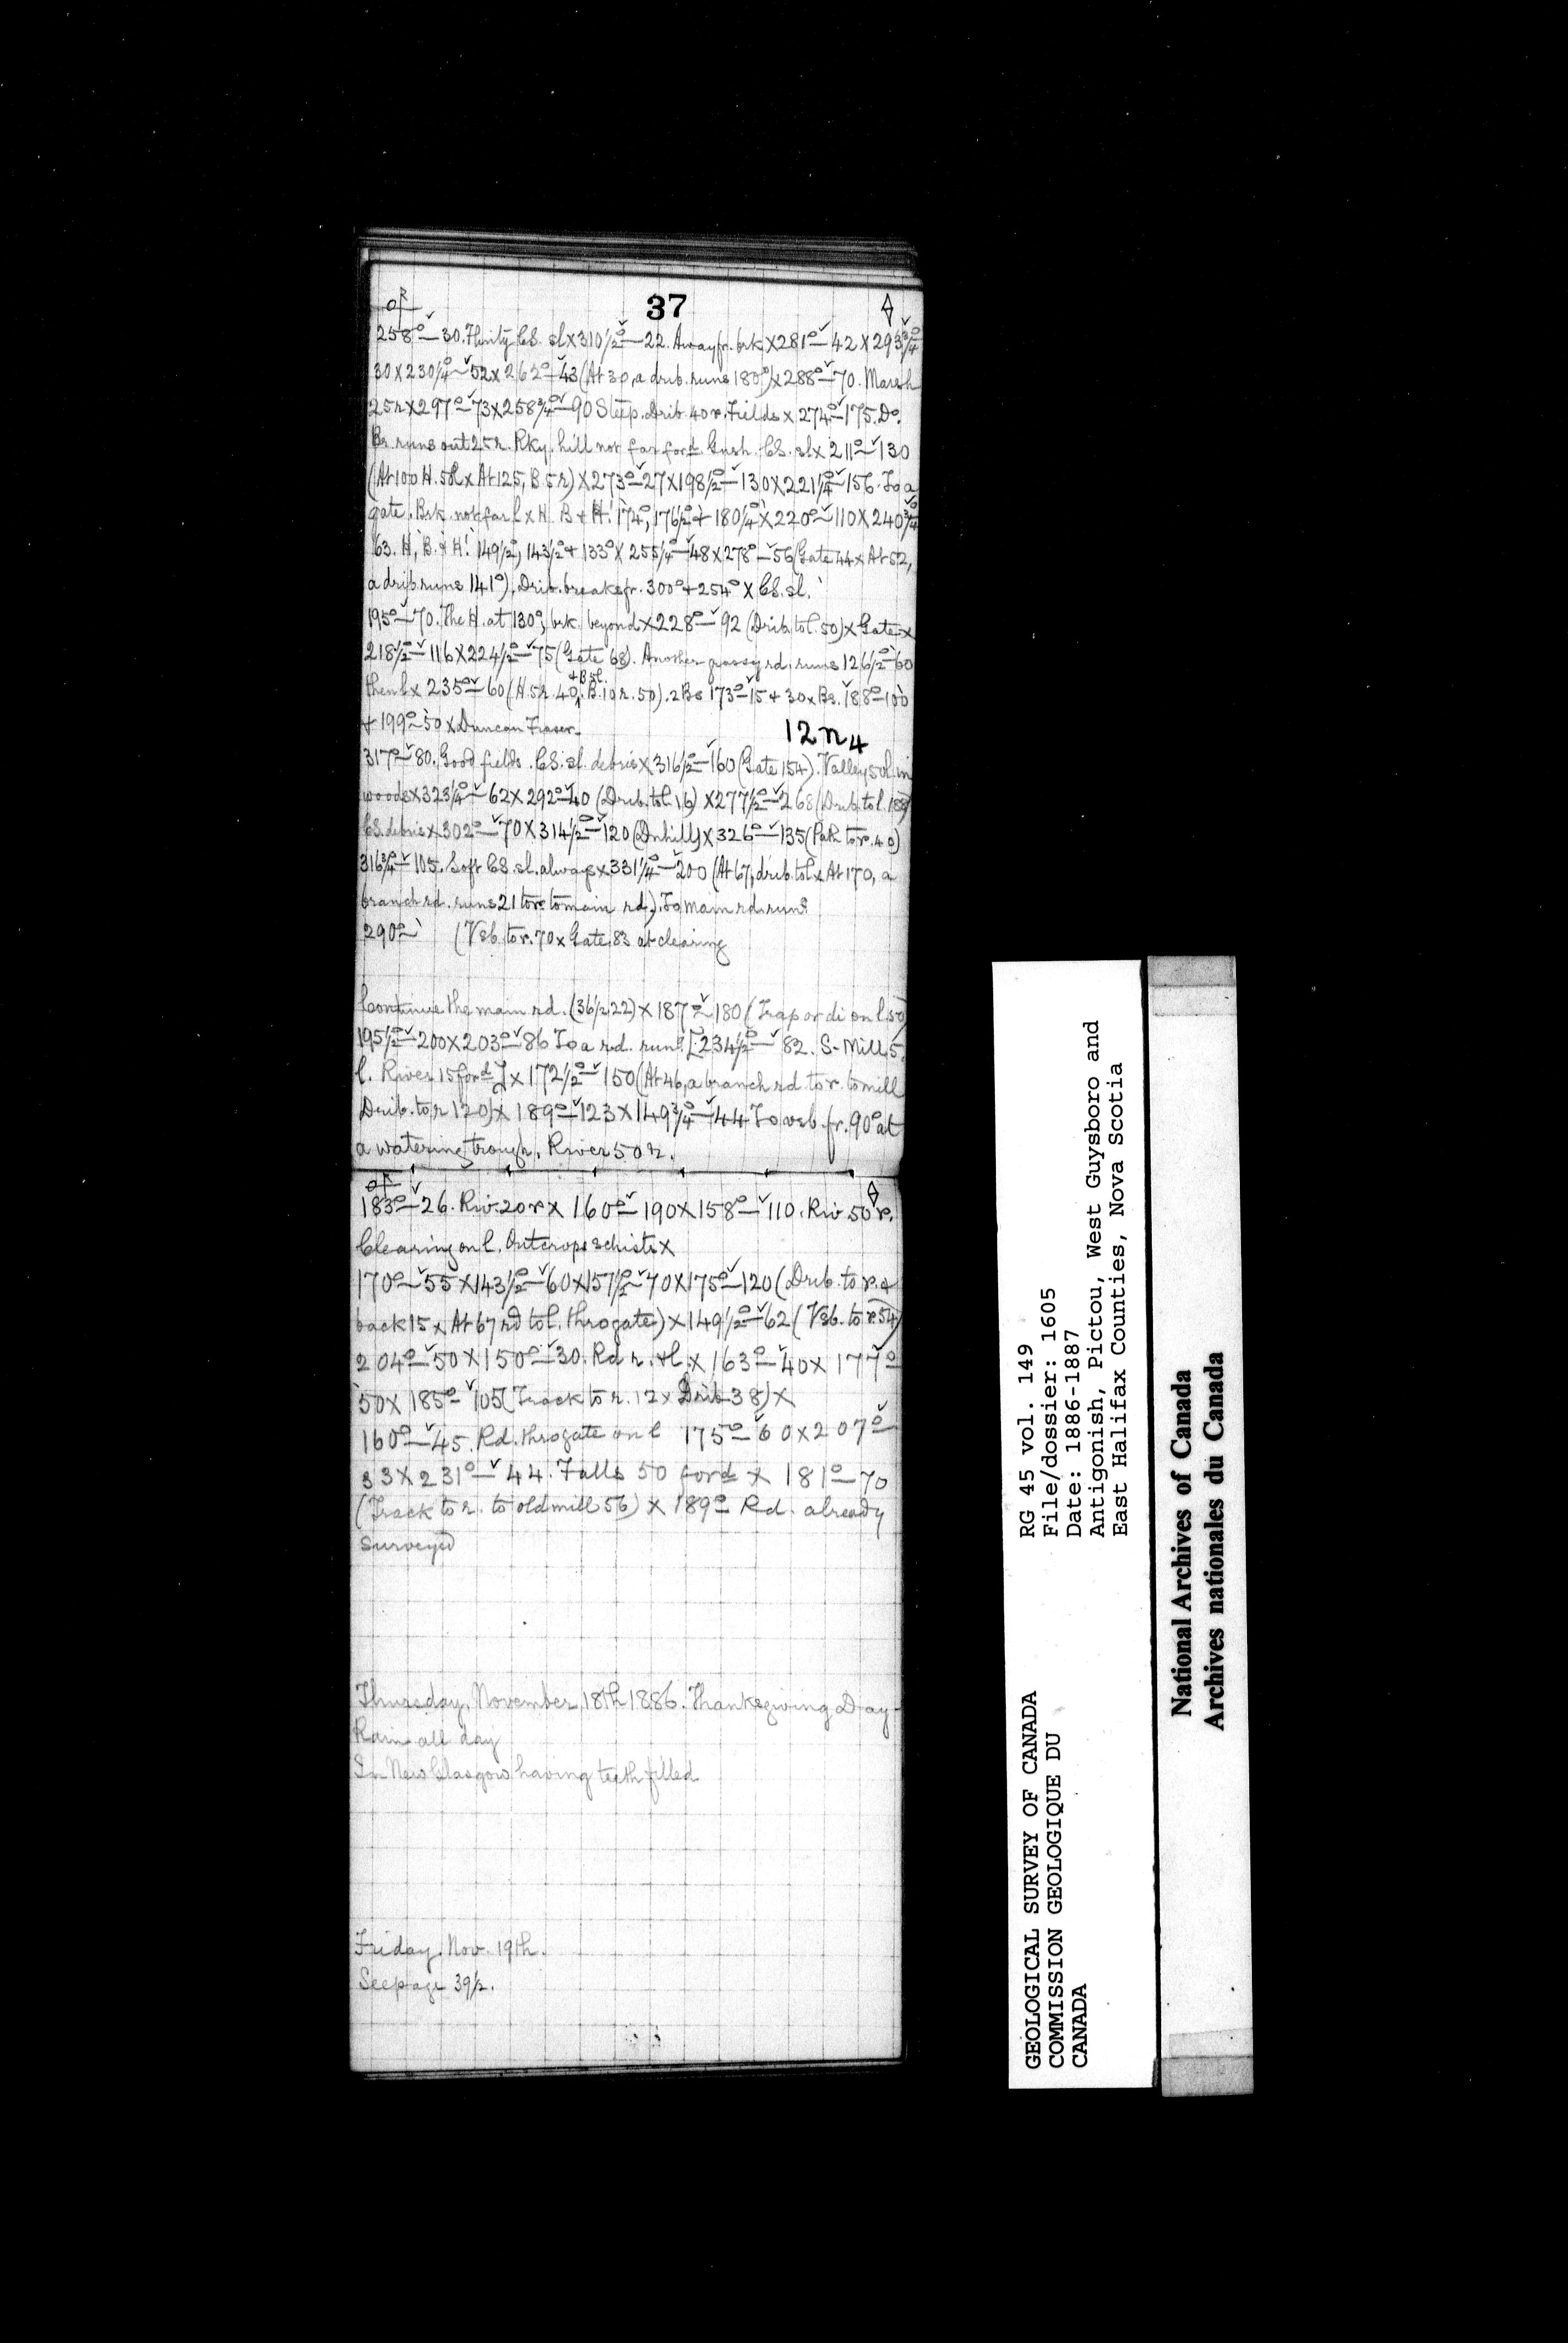 37
258°—30. Flinty CS. sl x 310½°—22. Away fr. brk x 281°—42 x 293¾°
30 x 230¼°—52 x 262°—43 (At 30, a drib. runs 180°) x 288°—70. Marsh
25r x 297°—73 x 258¾°—90 Steep. Drib. 40 r. Fields x 274°—175. Do.
Br. runs out 25 r. Rky. hill not far ford. CS. sl x 211°—130
(At 100 H. 5l x At 125, B. 5r) x 273°—27 x 198½°—130 x 221¼°—156. To a
gate. Brk. not far l x H. B + H! 174°, 176½° + 180¼° x 220°—110 x 240¾°
63. H, B. + H! 149½°, 143½° + 133° x 255¼°—48 x 278°—56 (Gate 44 x At 52,
a drib. runs 141°). Drib. breaks fr. 300° + 254° x CS. sl.
195°—70. The H. at 130°, brk. beyond x 228°—92 (Drib. to l. 50) x Gate x
218½°—116 x 224½°—75 (Gate 68). Another grassy rd. runs 126½°—60
then l x 235°—60 (H. 5r. 40, + B 5l. B. 10 r. 50). 2 Bs 173°—15 + 30 x Bs. 188°—100
+ 199°—50 x Duncan Fraser.
12 n 4
317°—80. Good fields. CS. sl. debris x 316½°—160 (Gate 154). Valley 50 l. in
woods x 323¼°—62 x 292°—40 (Drib. to l. 16) x 277½°—268 (Drib. to l. 188)
CS. debris x 302°—70 x 314½°—120 (Dnhill) x 326°—135 (Path to r. 40)
316¾°—105. Soft CS. sl. always x 331¼°—200 (At 67, drib. to l x At 170, a
branch rd. runs 21 to r. to main rd.). To main rd. runs
290°— (Vsb. to r. 70 x Gate 83 at clearing
Continue the main rd. (36½, 22) x 187°—180 (Trap or di on l. 50)
195½°—200 x 203°—86 To a rd. runs [234½°—82. S-Mill 5.
l. River 15 ford] x 172½°—150 (At 46, a branch rd. to r. to mill
Drib. to r 120) x 189°—123 x 149¾°—44 To vsb. fr. 90° at
a watering trough. River 50 r.
183°—26. Riv. 20 r x 160°—190 x 158°—110. Riv. 50 r.
Clearing on l. Outcrops schists x
170°—55 x 143½°—60 x 157½°—70 x 175°—120 (Drib. to r. +
back 15 x At 67 rd to l. thro gate) x 149½°—62 (Vsb. to r. 54)
204°—50 x 150°—30. Rd r. + l. x 163°—40 x 177°—
50 x 185°—105 (Track to r. 12 x Drib 38) x
160°—45. Rd. thro gate on l 175°—60 x 207°—
33 x 231°—44. Falls 50 ford x 181°—70
(Track to r. to old mill 56) x 189° Rd. already
surveyed
Thursday, November 18th 1886. Thanksgiving Day.
Rain all day
In New Glasgow having teeth filled
Friday. Nov. 19th.
See page 39½.
GEOLOGICAL SURVEY OF CANADA
COMMISSION GEOLOGIQUE DU
CANADA
RG 45 vol. 149
File/dossier: 1605
Date: 1886-1887
Antigonish, Pictou, West Guysboro and
East Halifax Counties, Nova Scotia
National Archives of Canada
Archives nationales du Canada